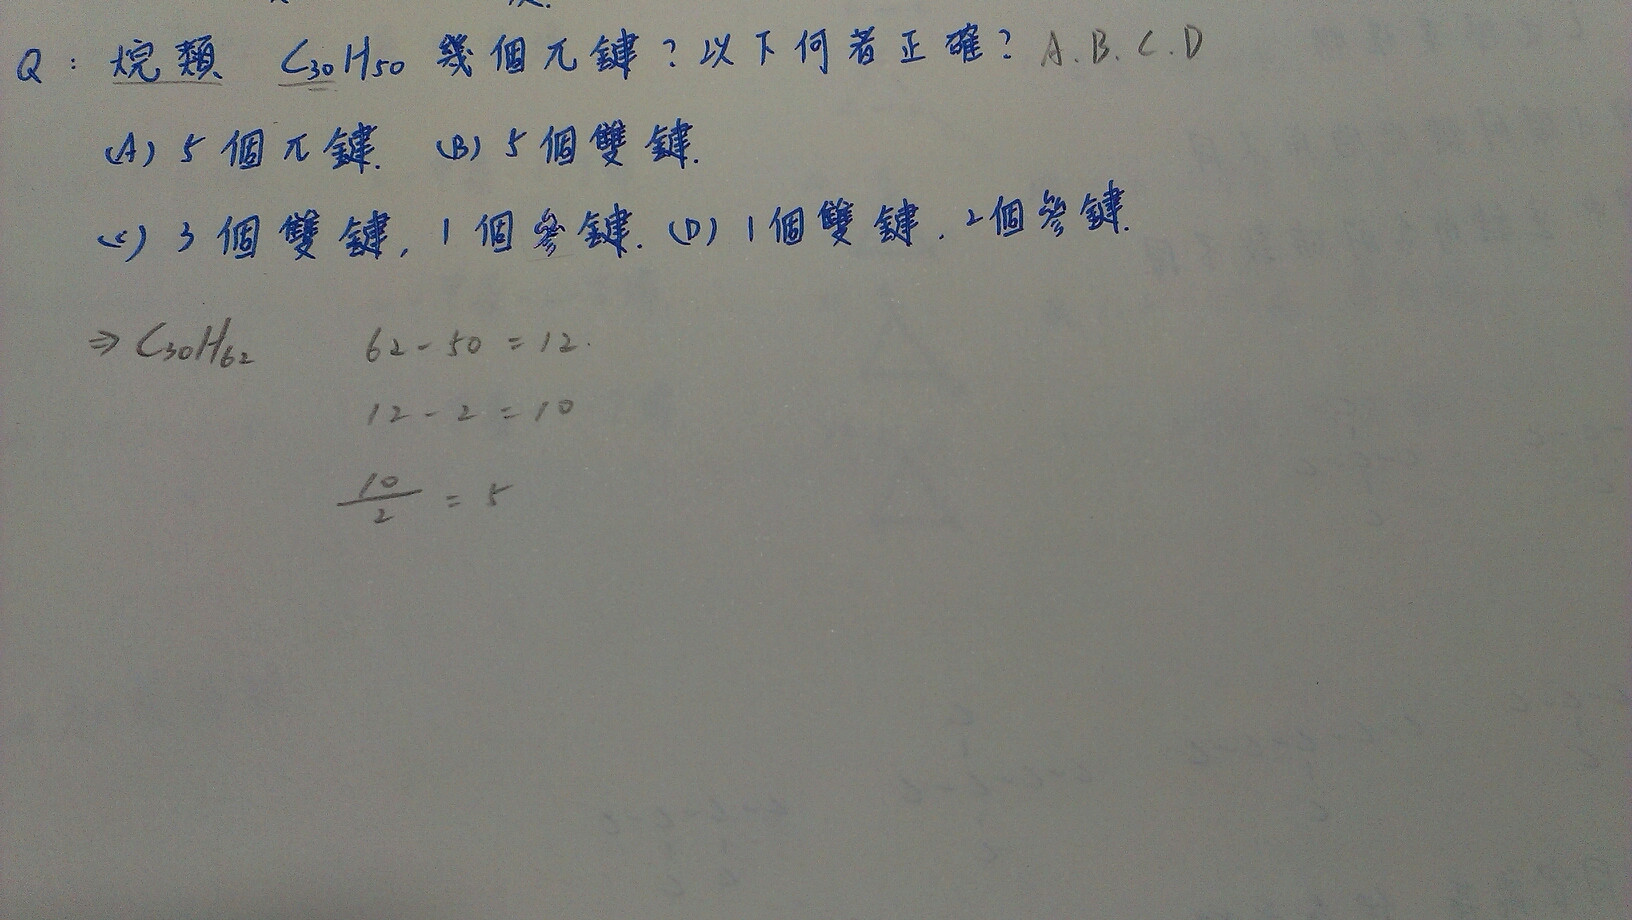 Q: 烷類 C30H50 幾個π鍵?以下何者正確? A.B.C.D
(A) 5個π鍵. (B) 5個雙鍵.
(C) 3個雙鍵, 1個參鍵. (D) 1個雙鍵. 2個參鍵.
⇒ C30H62 62-50=12.
12-2=10
10/2 = 5